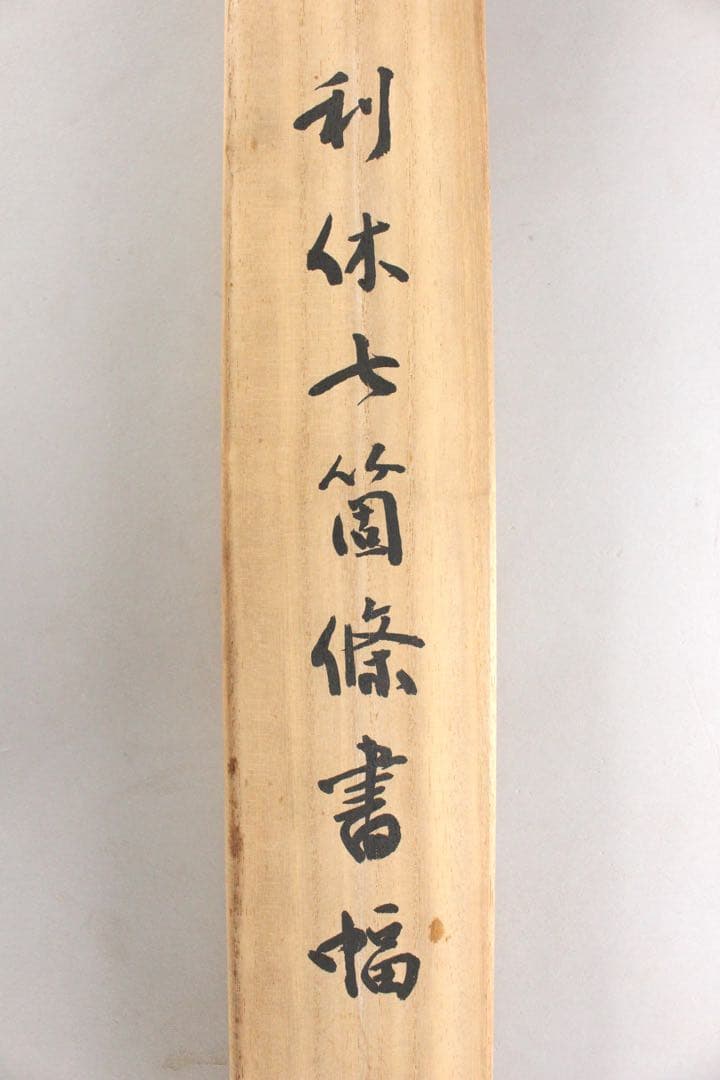 利休七箇條書幅